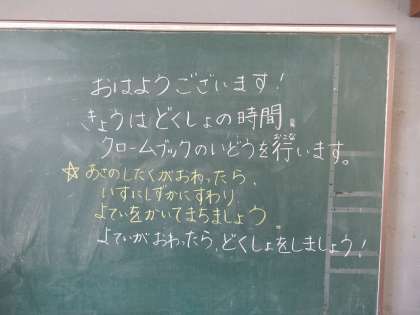 おはようございます!
きょうはどくしょの時間
クロームブックのいどうを行います。
☆あさのしたくがおわったら、
いすにしずかにすわり
よていをかいてまちましょう
よていがおわったら、どくしょをしましょう!